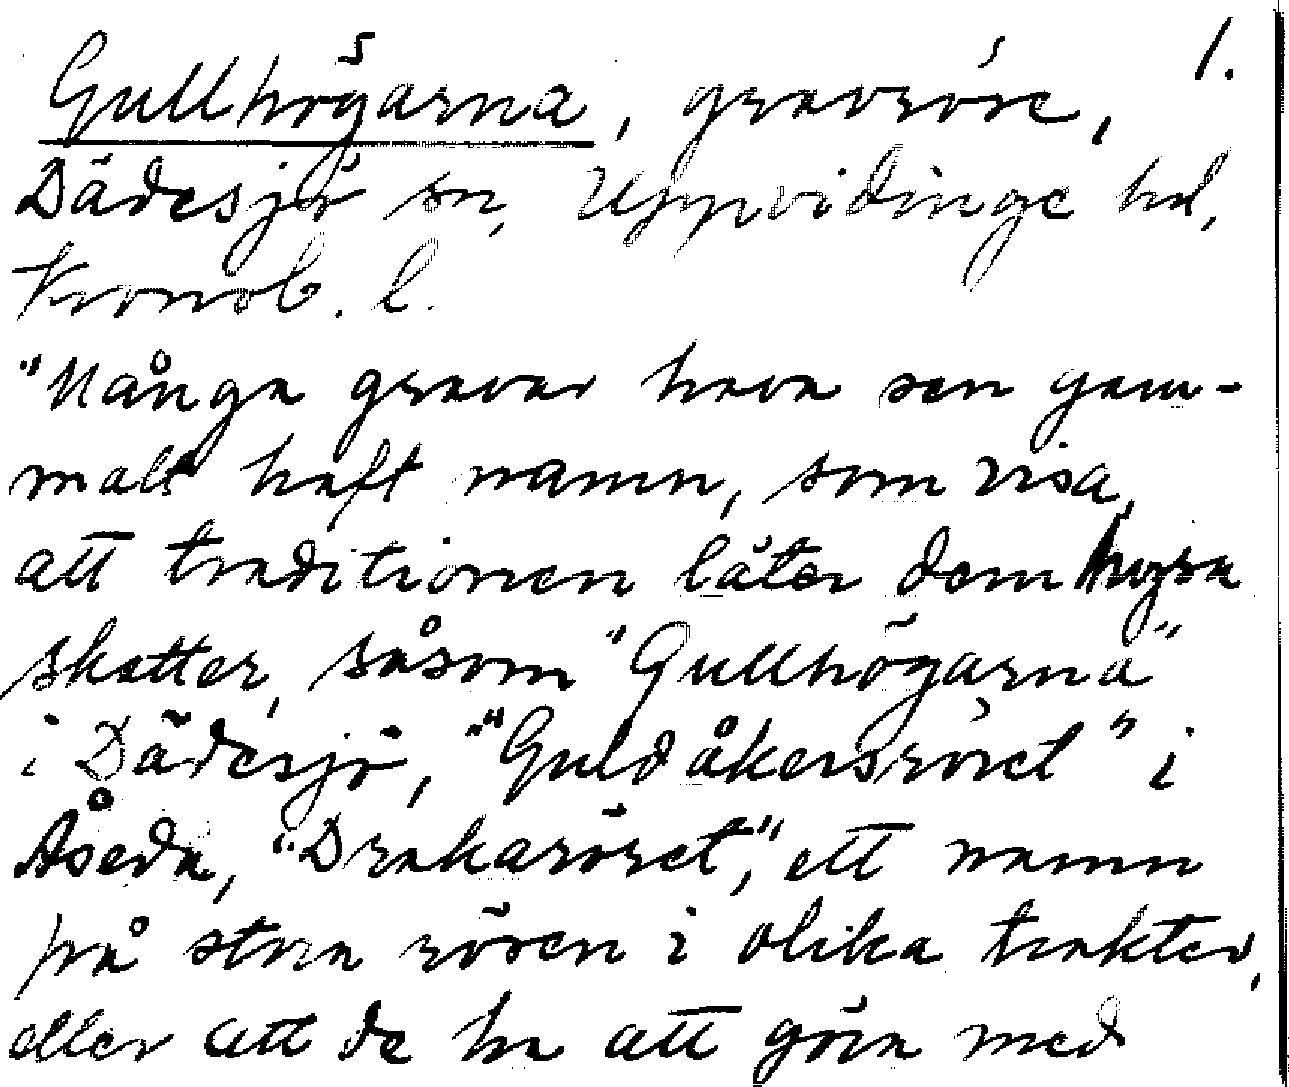 1.
Gullhögarna, gravröse,
Dädesjö sn, Uppvidinge hd,
Kronob. l.
"Många gravar hava sen gam-
malt haft namn, som visa,
att traditionen låter dem hysa
skatter, såsom "Gullhögarna"
i Dädesjö, "Guldåkersröset" i
Åseda, "Drakaröset," ett namn
på stora rösen i olika trakter,
eller att de ha att göra med